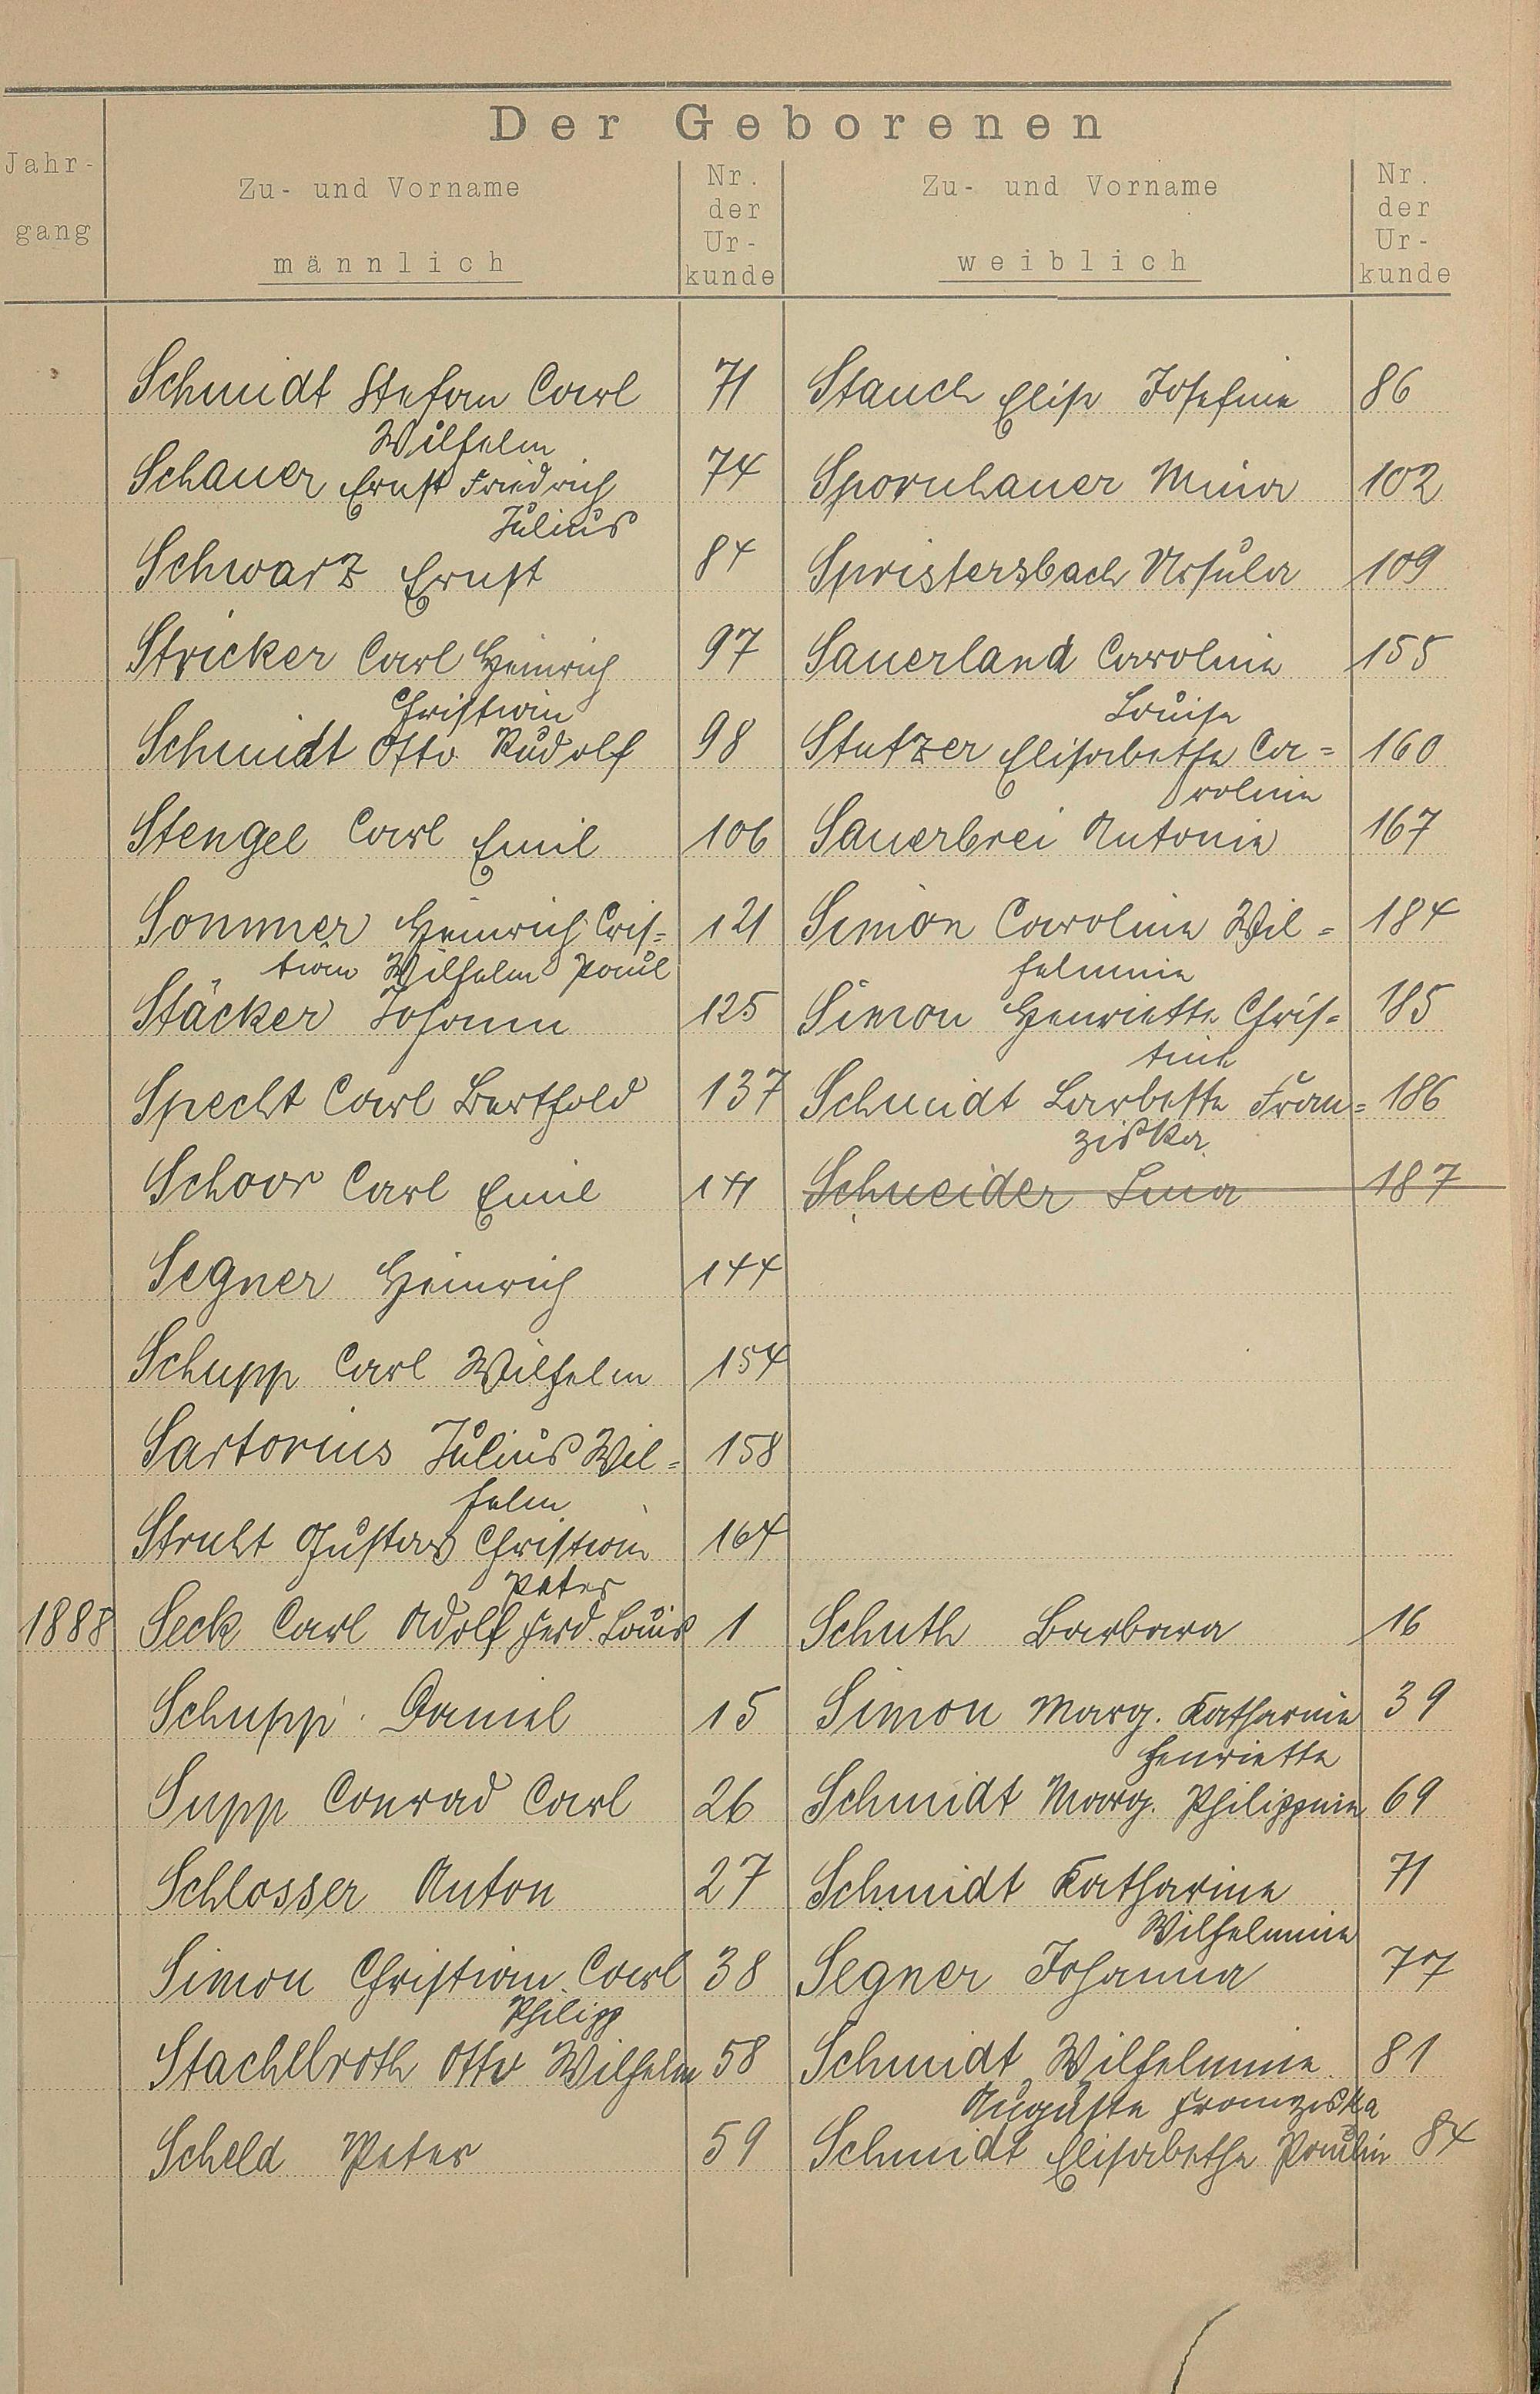 Der Geborenen
Jahr-
gang
Zu- und Vorname
männlich
Nr.
der
Ur-
kunde
Zu- und Vorname
weiblich
Nr.
der
Ur-
kunde
Schmidt Stefan Carl 71 Stauch Elise Josefine 86
Wilhelm
Schauer Ernst Friedrich 74 Spornhauer Mina 102
Julius
Schwarz Ernst 84 Spristersbach Ursula 109
Stricker Carl Heinrich 97 Sauerland Caroline 155
Christian Louise
Schmidt Otto Rudolf 98 Stutzer Elisabethe Ca= 160
roline
Stengel Carl Emil 106 Sauerbrei Antonie 167
Sommer Heinrich Cris= 121 Simon Caroline Wil= 184
tian Wilhelm Paul helmine
Stäcker Johann 125 Simon Henriette Chris= 185
tine
Specht Carl Berthold 137 Schmidt Barbette Fran= 186
ziska
Schoor Carl Emil 141 Schneider Lina 187
Segner Heinrich 144
Schupp Carl Wilhelm 154
Sartorius Julius Wil= 158
helm
Struht Gustav Christian 164
Peter
1888 Seck Carl Adolf Ferd. Louis 1 Schuth Barbara 16
Schupp Daniel 15 Simon Marg. Katharine 39
Henriette
Supp Conrad Carl 26 Schmidt Marg. Philippine 69
Schlosser Anton 27 Schmidt Katharine 71
Wilhelmine
Simon Christian Carl 38 Segner Johanna 77
Philipp
Stachelroth Otto Wilhelm 58 Schmidt Wilhelmine 81
Auguste Franziska
Scheld Peter 59 Schmidt Elisabethe Paulin 84